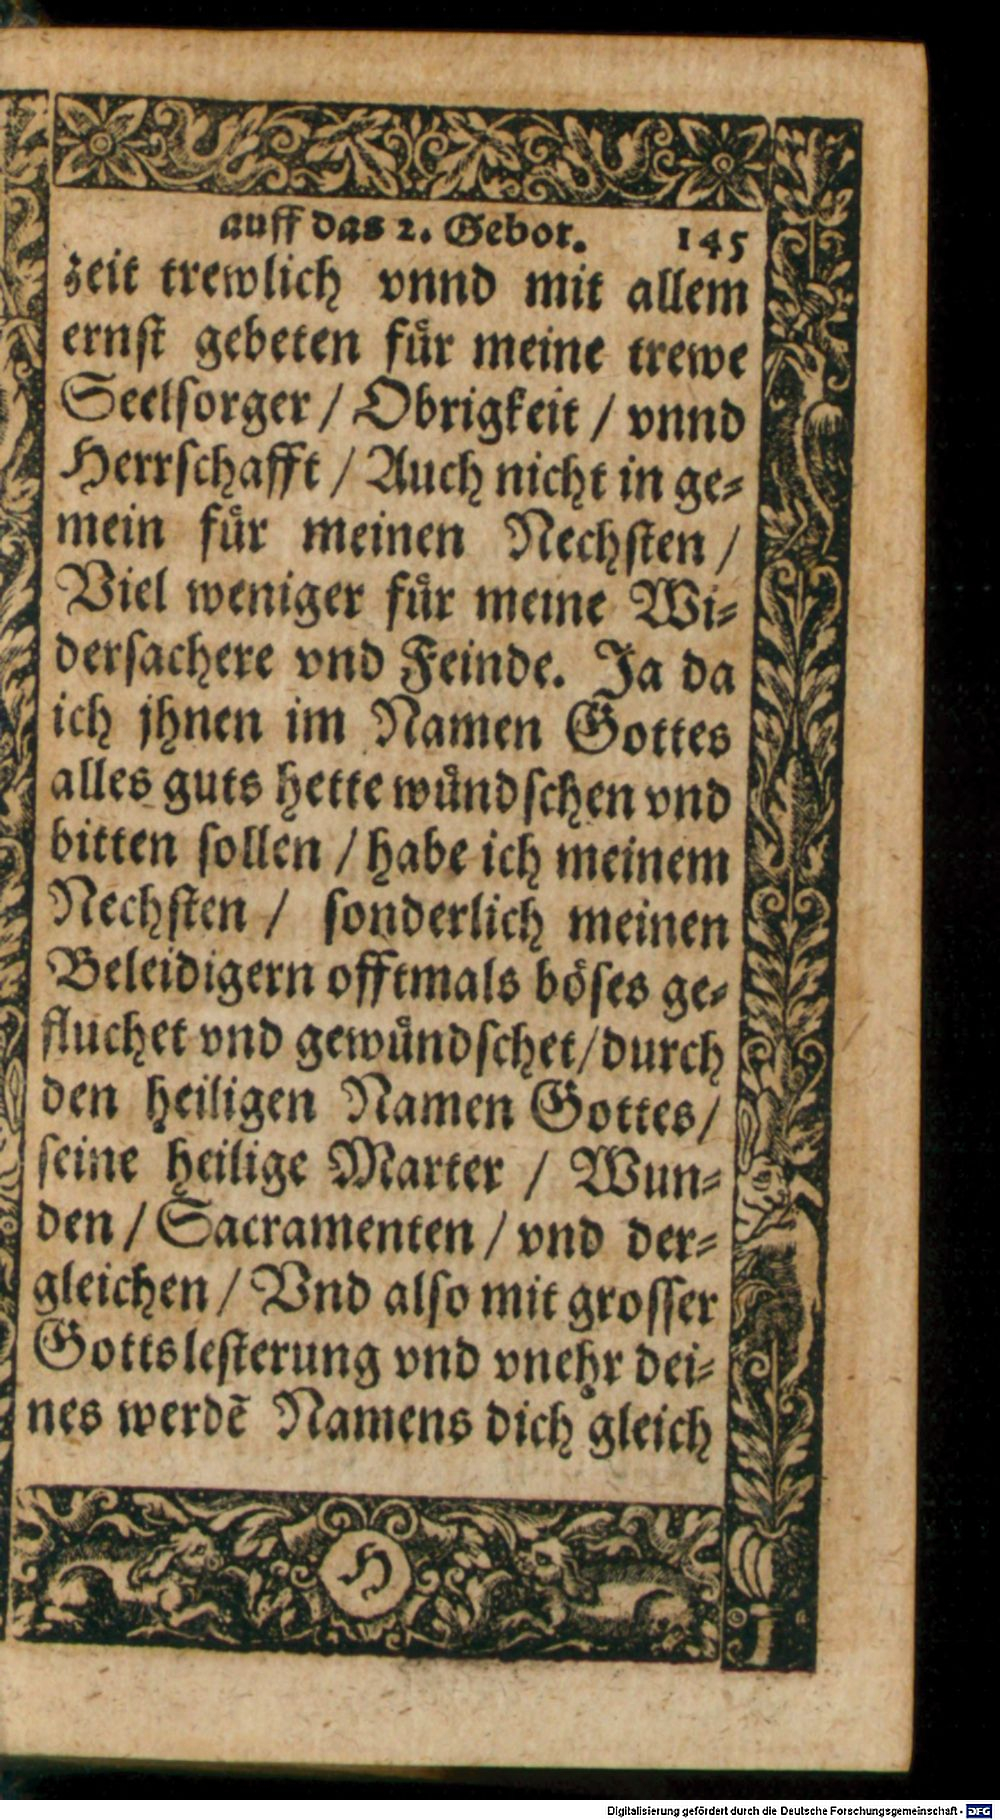 auff das 2. Gebot. 145
zeit trewlich vnnd mit allem
ernſt gebeten fuͤr meine trewe
Seelſorger / Obrigkeit / vnnd
Herrſchafft / Auch nicht in ge⸗
mein fuͤr meinen Nechſten /
Viel weniger fuͤr meine Wi⸗
derſachere vnd Feinde. Ja da
ich jhnen im Namen Gottes
alles guts hette wuͤndſchen vnd
bitten ſollen / habe ich meinem
Nechſten / ſonderlich meinen
Beleidigern offtmals boͤſes ge⸗
fluchet vnd gewuͤndſchet / durch
den heiligen Namen Gottes /
ſeine heilige Marter / Wun⸗
den / Sacramenten / vnd der⸗
gleichen / Vnd alſo mit groſſer
Gottsleſterung vnd vnehr dei⸗
nes werdē Namens dich gleich
H
Digitalisierung gefördert durch die Deutsche Forschungsgemeinschaft - DFG